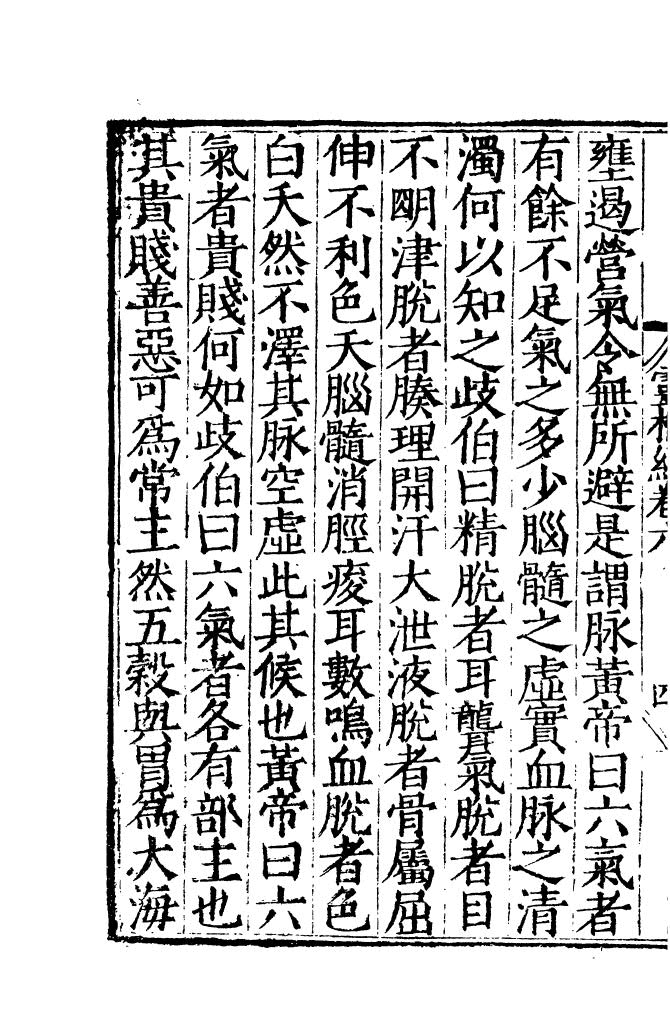 靈樞經卷六
四
壅遏營氣令無所避是謂脉黃帝曰六氣者
有餘不足氣之多少腦髓之虛實血脉之清
濁何以知之歧伯曰精脫者耳聾氣脫者目
不明津脫者腠理開汗大泄液脫者骨屬屈
伸不利色夭腦髓消脛痠耳數鳴血脫者色
白夭然不澤其脉空虛此其候也黃帝曰六
氣者貴賤何如歧伯曰六氣者各有部主也
其貴賤善惡可爲常主然五穀與胃爲大海